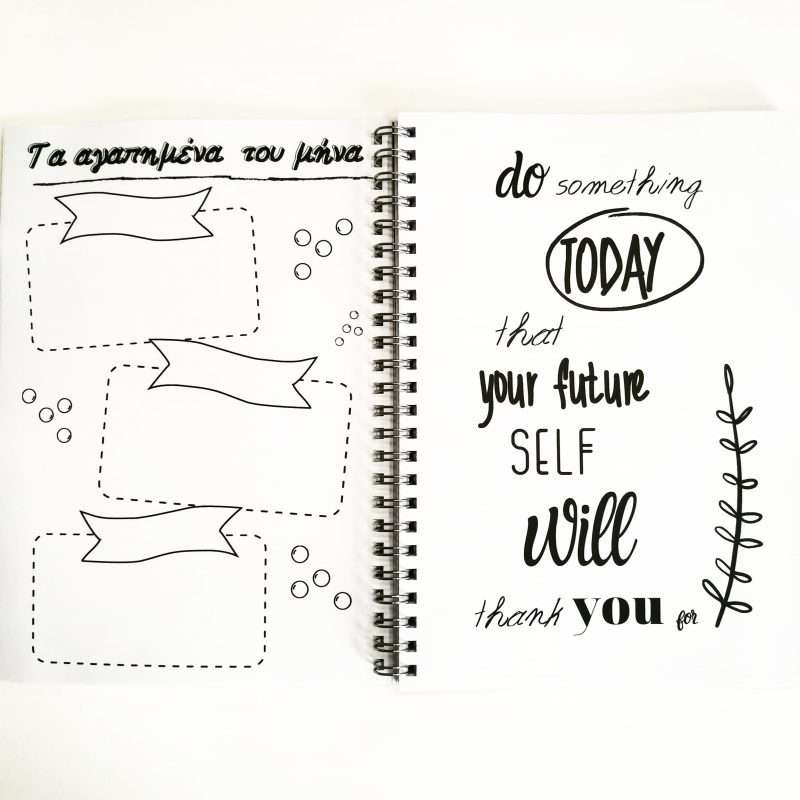 Τα αγαπημένα του μήνα
do something
TODAY
that
your future
SELF
will
thank you for